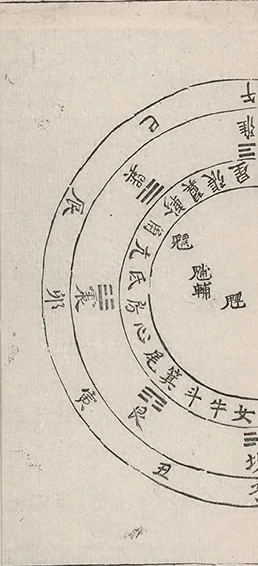 午
巳
辰
卯
寅
丑
子
離
巽
震
艮
坎
星張翼軫角亢氐房心尾箕斗牛女
輔